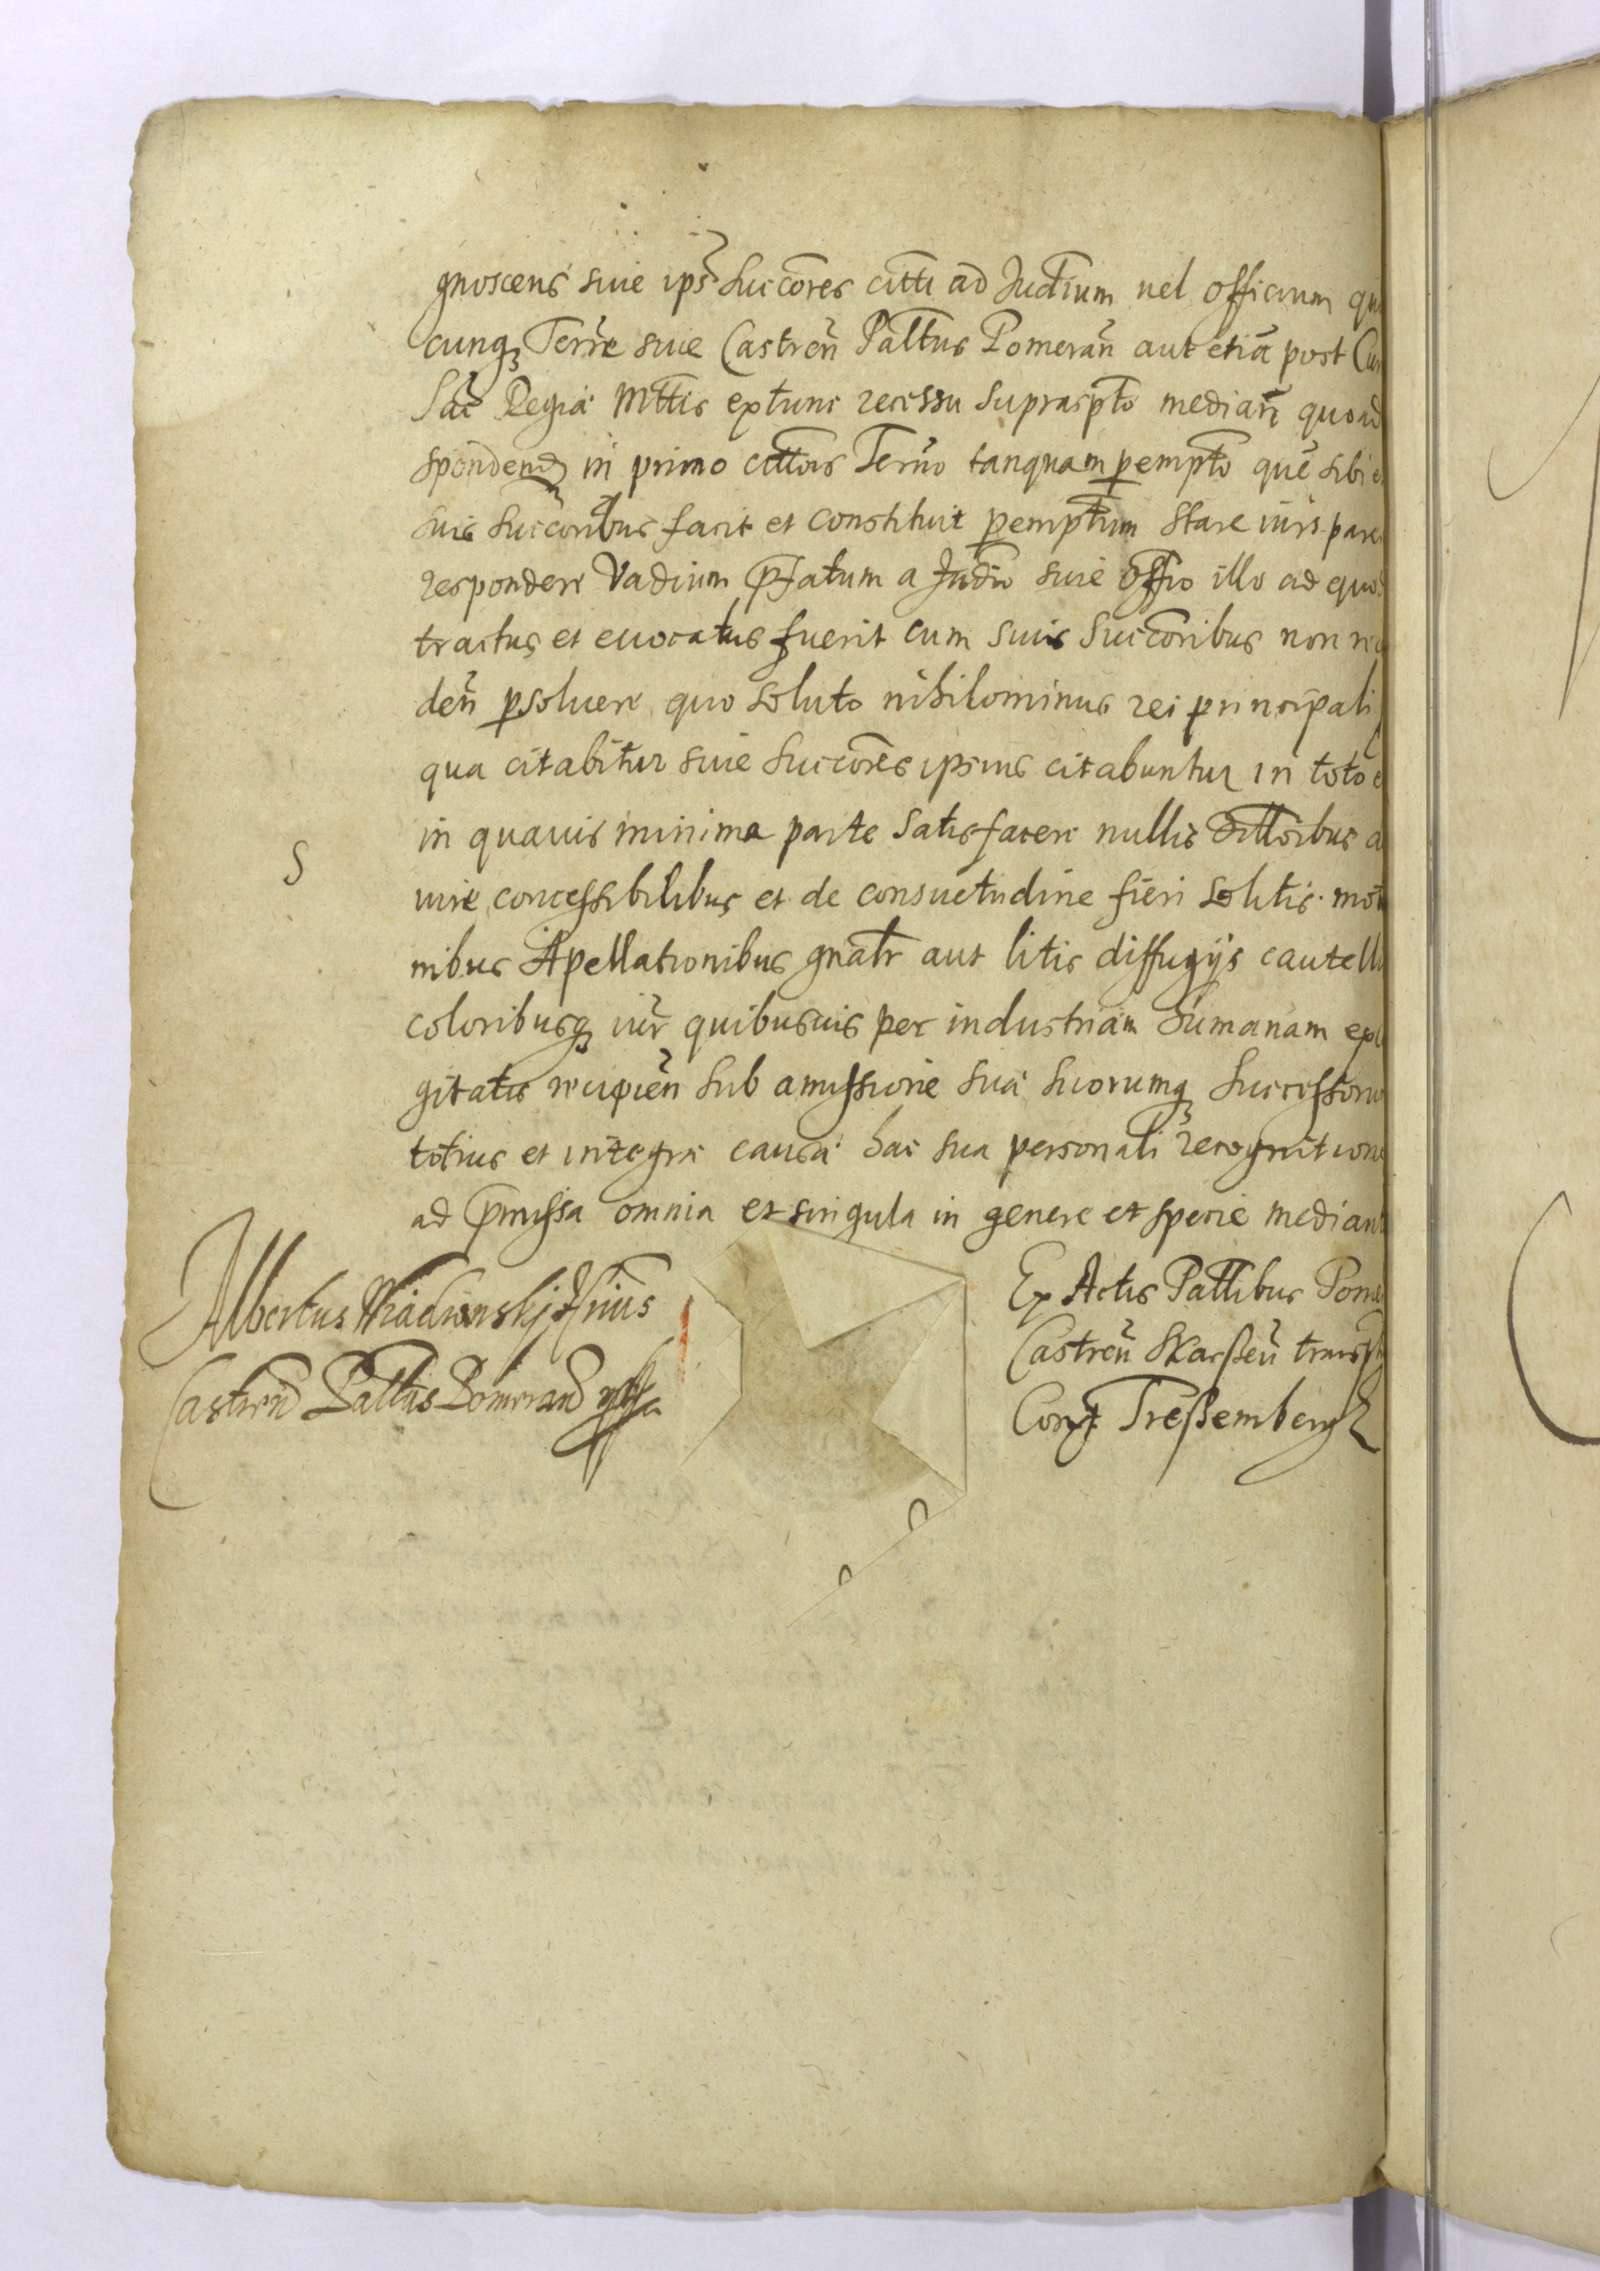 gnoscens siue ips Succores citti ad Judium uel officium qu
cunq Terre siue Castren Palttus Pomeran aut etia post Cur
Sac Regiae Mttis extunc recessu suprascpto median quoad
spondend in primo cittois Termo tanquam pempto que sibi e
suis Succoribus facit et constituit pemptrium stare iuri pare
respondere Vadium pfatum a Judio siue offio illo ad quod
tractus et euocatus fuerit cum suis Succoribus non rece
den psoluere quo soluto nihilominus rei principali
qua citabitur siue Succores ipsius citabuntur in toto e
in quauis minima parte satisfacere nullis dittoibus a
iure concessibilibus et de consuetudine fieri solitis mot
nibus Apellationibus gnalr aut litis diffugijs cautell
coloribusq iur quibusuis per industriam humanam exc
gitatis recipien sub amissione suae suorumq Successoru
totius et integre causae hac sua personali recognitione
ad pmissa omnia et singula in genere et specie mediant
S
Albertus
Castren Palttus Pomeran
Ex Actis Palttibus Pome
Castren Skarßen transpt
Corrt Treßemberg